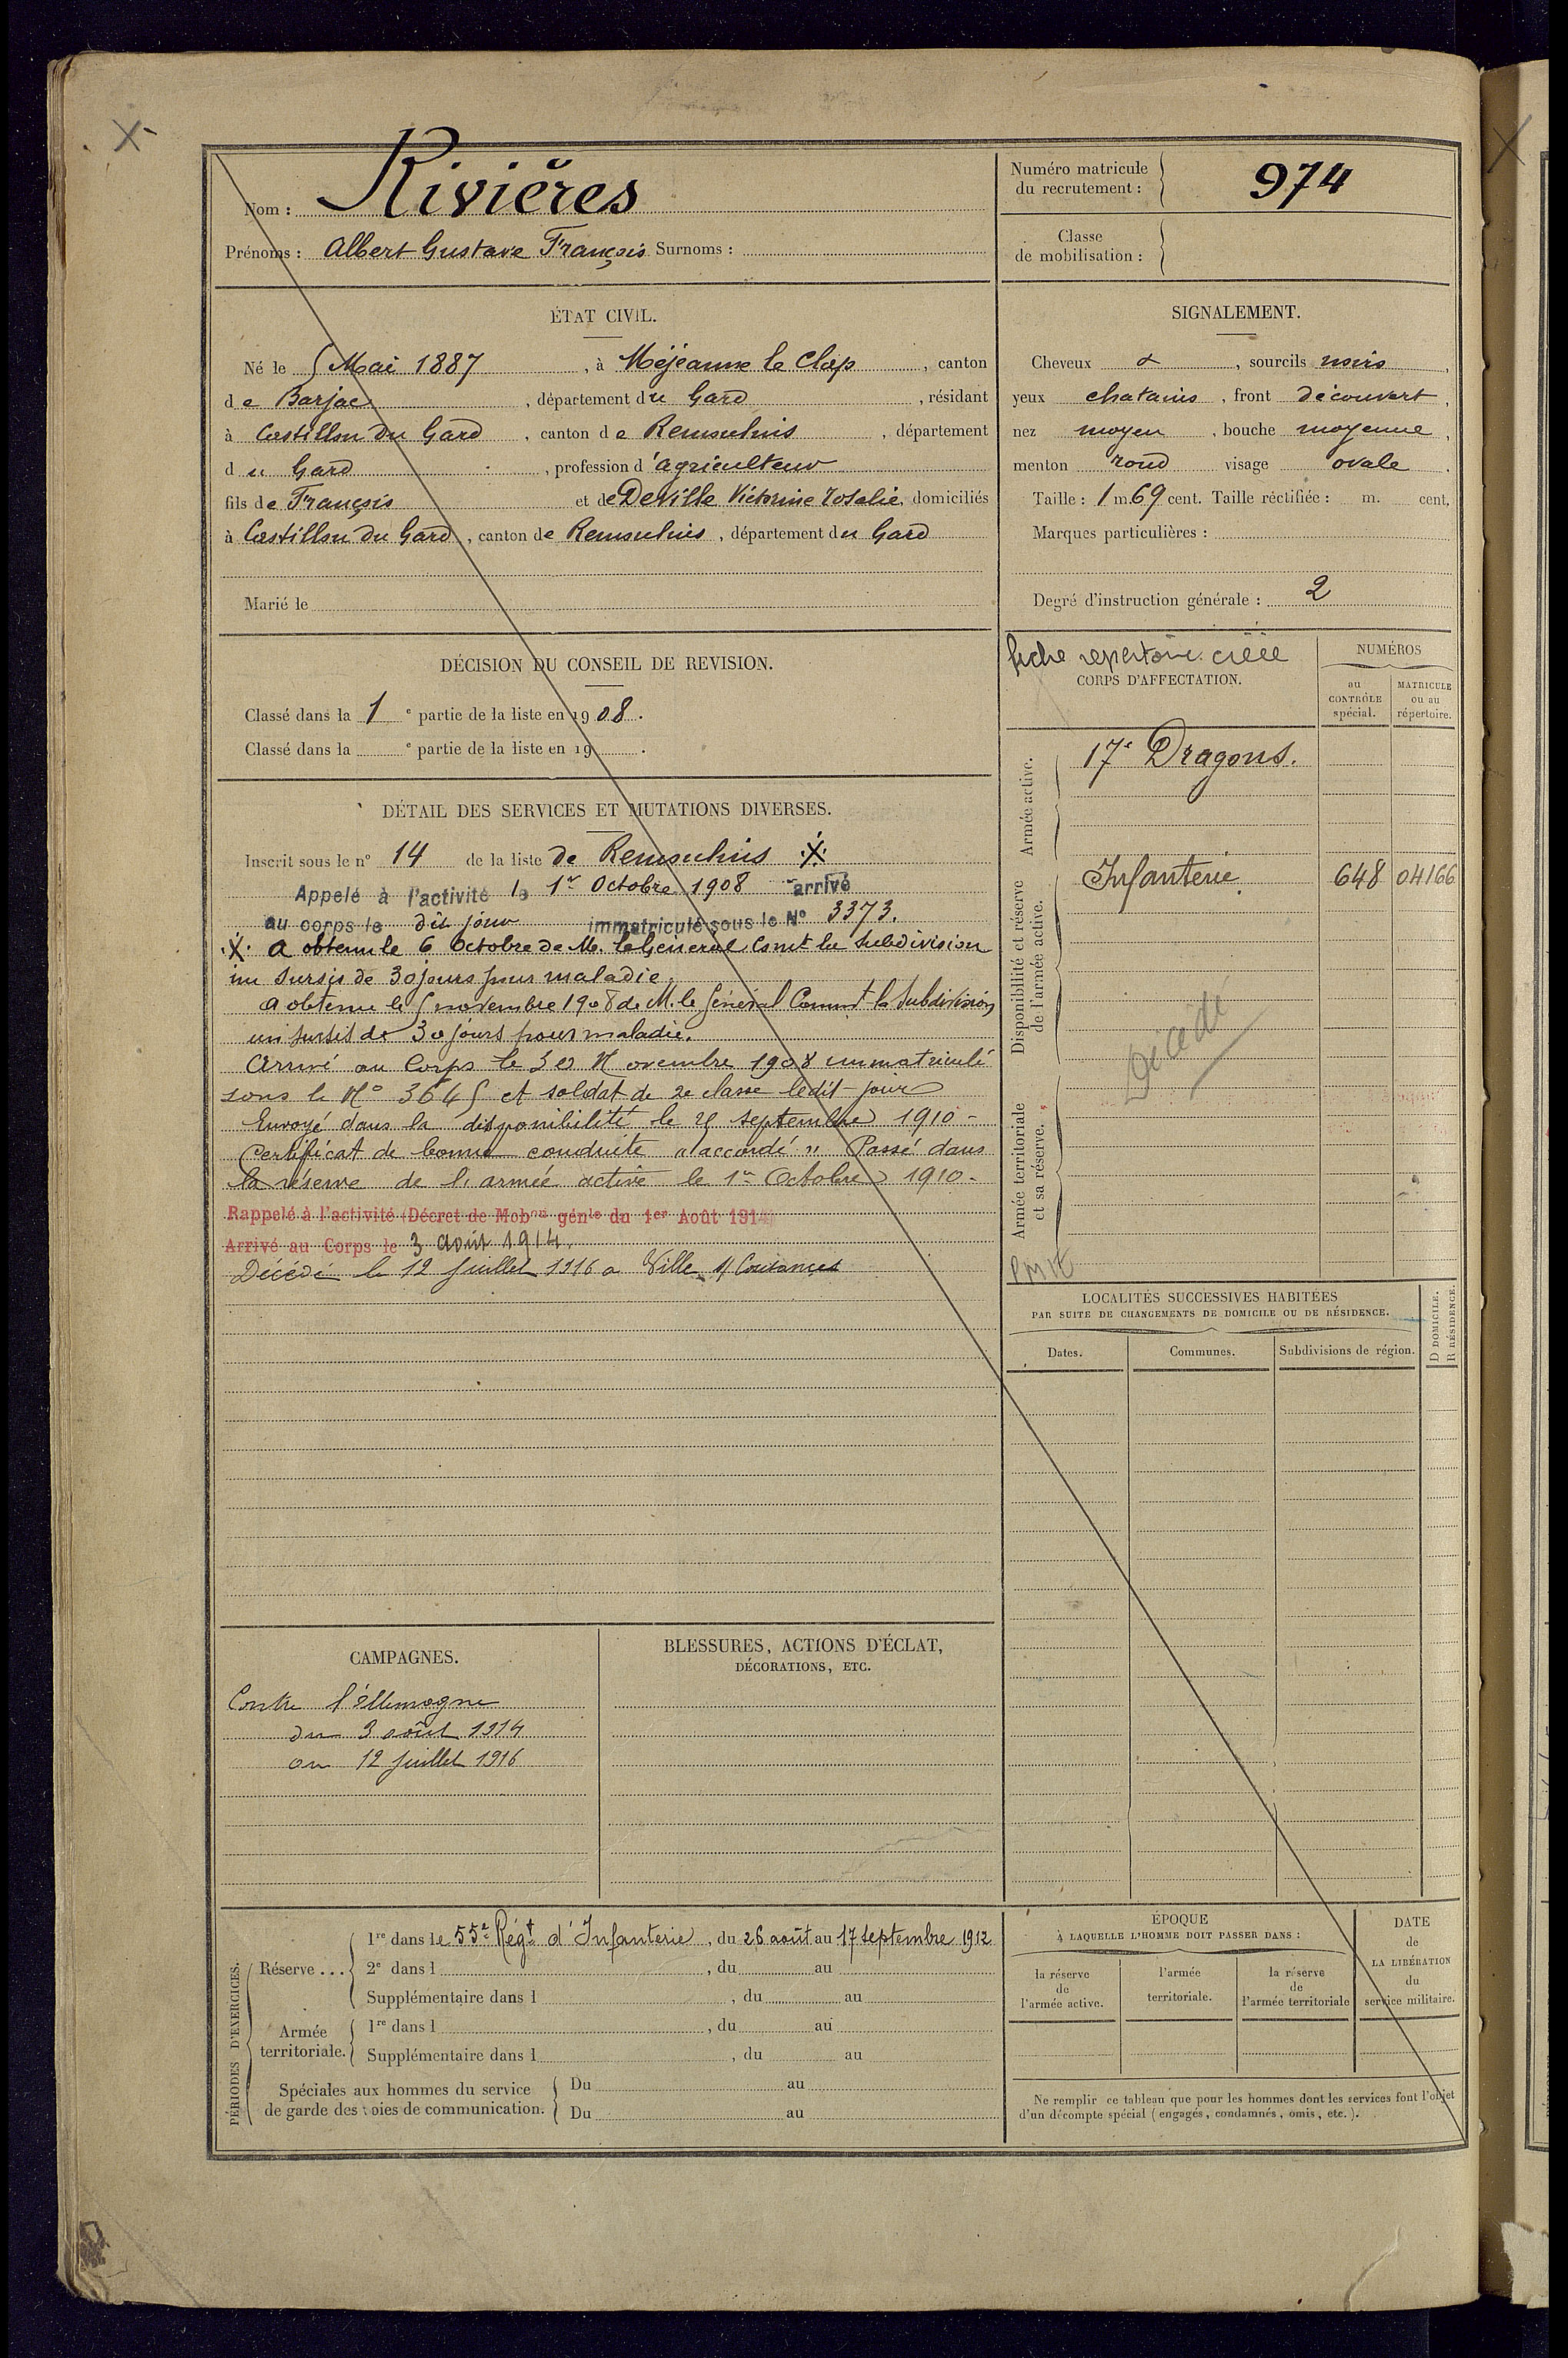 Nom : Rivières
Prénoms : Albert Gustave François Surnoms :
Numéro matricule
du recrutement : 974
Classe
de mobilisation :
ÉTAT CIVIL.
Né le 5 Mai 1887, à Méjeanne le Clap, canton
de Barjac, département du Gard, résidant
à Castillon du Gard, canton de Remoulins, département
du Gard, profession d'agriculteur
fils de François et de Deville Victorine Rosalie, domiciliés
à Castillon du Gard, canton de Remoulins, département du Gard
Marié le
SIGNALEMENT.
Cheveux &, sourcils noirs,
yeux chatains, front découvert,
nez moyen, bouche moyenne,
menton rond visage ovale.
Taille : 1 m. 69 cent. Taille réctifiée : m. cent.
Marques particulières :
Degré d'instruction générale : 2
DÉCISION DU CONSEIL DE REVISION.
Classé dans la 1 e partie de la liste en 1908.
Classé dans la e partie de la liste en 19 .
DÉTAIL DES SERVICES ET MUTATIONS DIVERSES.
Inscrit sous le n° 14 de la liste de Remoulins ※
Appelé à l'activité le 1er Octobre 1908 arrivé
au corps le dit jour immatriculé sous le N° 3373.
※ a obtenu le 6 Octobre de M. le Général Comt la Subdivision
un sursis de 30 jours pour maladie.
a obtenu le 5 novembre 1908 de M. le Général Commt la Subdivision
un sursis de 30 jours pour maladie.
Arrivé au Corps le 30 Novembre 1908 immatriculé
sous le N° 3645 et soldat de 2e classe ledit jour
Envoyé dans la disponibilité le 25 septembre 1910 -
Certificat de bonne conduite "accordé" Passé dans
la réserve de l'armée active le 1er Octobre 1910 -
Rappelé à l'activité (Décret de Mobon génle du 1er Août 1914)
Arrivé au Corps le 3 août 1914.
Décédé le 12 juillet 1916 a Ville s/ Cousances
fiche repertoire créée
CORPS D'AFFECTATION.
NUMÉROS
au
CONTRÔLE
spécial.
MATRICULE
ou au
répertoire.
Armée active.
17e Dragons.
Disponibilité et réserve
de l'armée active.
Infanterie. 648 04166
Décédé
Armée territoriale
et sa réserve.
LOCALITÉS SUCCESSIVES HABITÉES
PAR SUITE DE CHANGEMENTS DE DOMICILE OU DE RÉSIDENCE.
D DOMICILE.
R RÉSIDENCE.
Dates. Communes. Subdivisions de région.
CAMPAGNES.
Contre l'Allemagne
du 3 août 1914
au 12 juillet 1916
BLESSURES, ACTIONS D'ÉCLAT,
DÉCORATIONS, ETC.
PÉRIODES D'EXERCICES.
Réserve ... 1re dans le 55e Régt d'Infanterie, du 26 août au 17 septembre 1912
2e dans l , du au
Supplémentaire dans l , du au
Armée
territoriale.
1re dans l , du au
Supplémentaire dans l , du au
Spéciales aux hommes du service
de garde des voies de communication.
Du au
Du au
ÉPOQUE
À LAQUELLE L'HOMME DOIT PASSER DANS :
la réserve
de
l'armée active.
l'armée
territoriale.
la réserve
de
l'armée territoriale
DATE
de
LA LIBÉRATION
du
service militaire.
Ne remplir ce tableau que pour les hommes dont les services font l'objet
d'un décompte spécial (engagés, condamnés, omis, etc.).